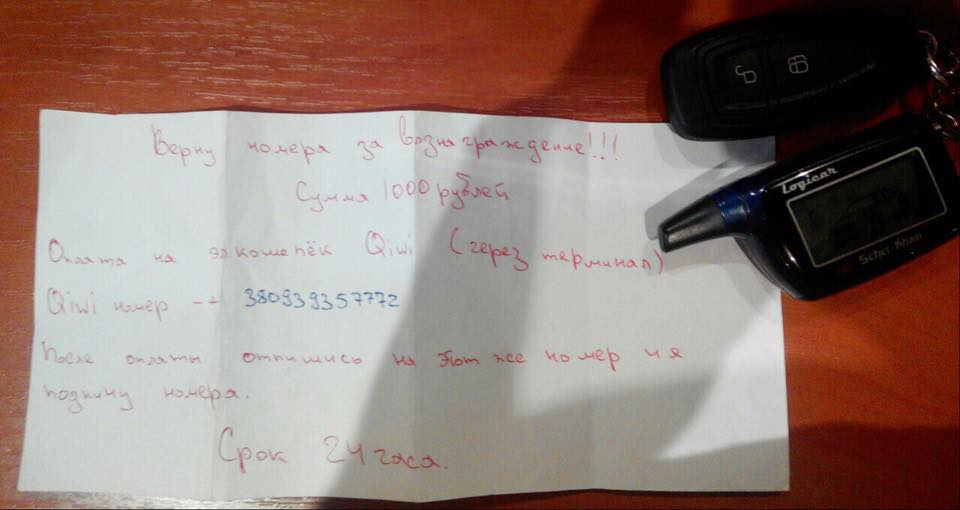 Верну номера за вознаграждение!!!
Сумма 1000 рублей
Оплата на эл кошелёк Qiwi (через терминал)
Qiwi номер -+ 380939357772
После оплаты отпишись на этот же номер и я
подкину номера.
Срок 24 часа.
Logicar
Scher-Khan